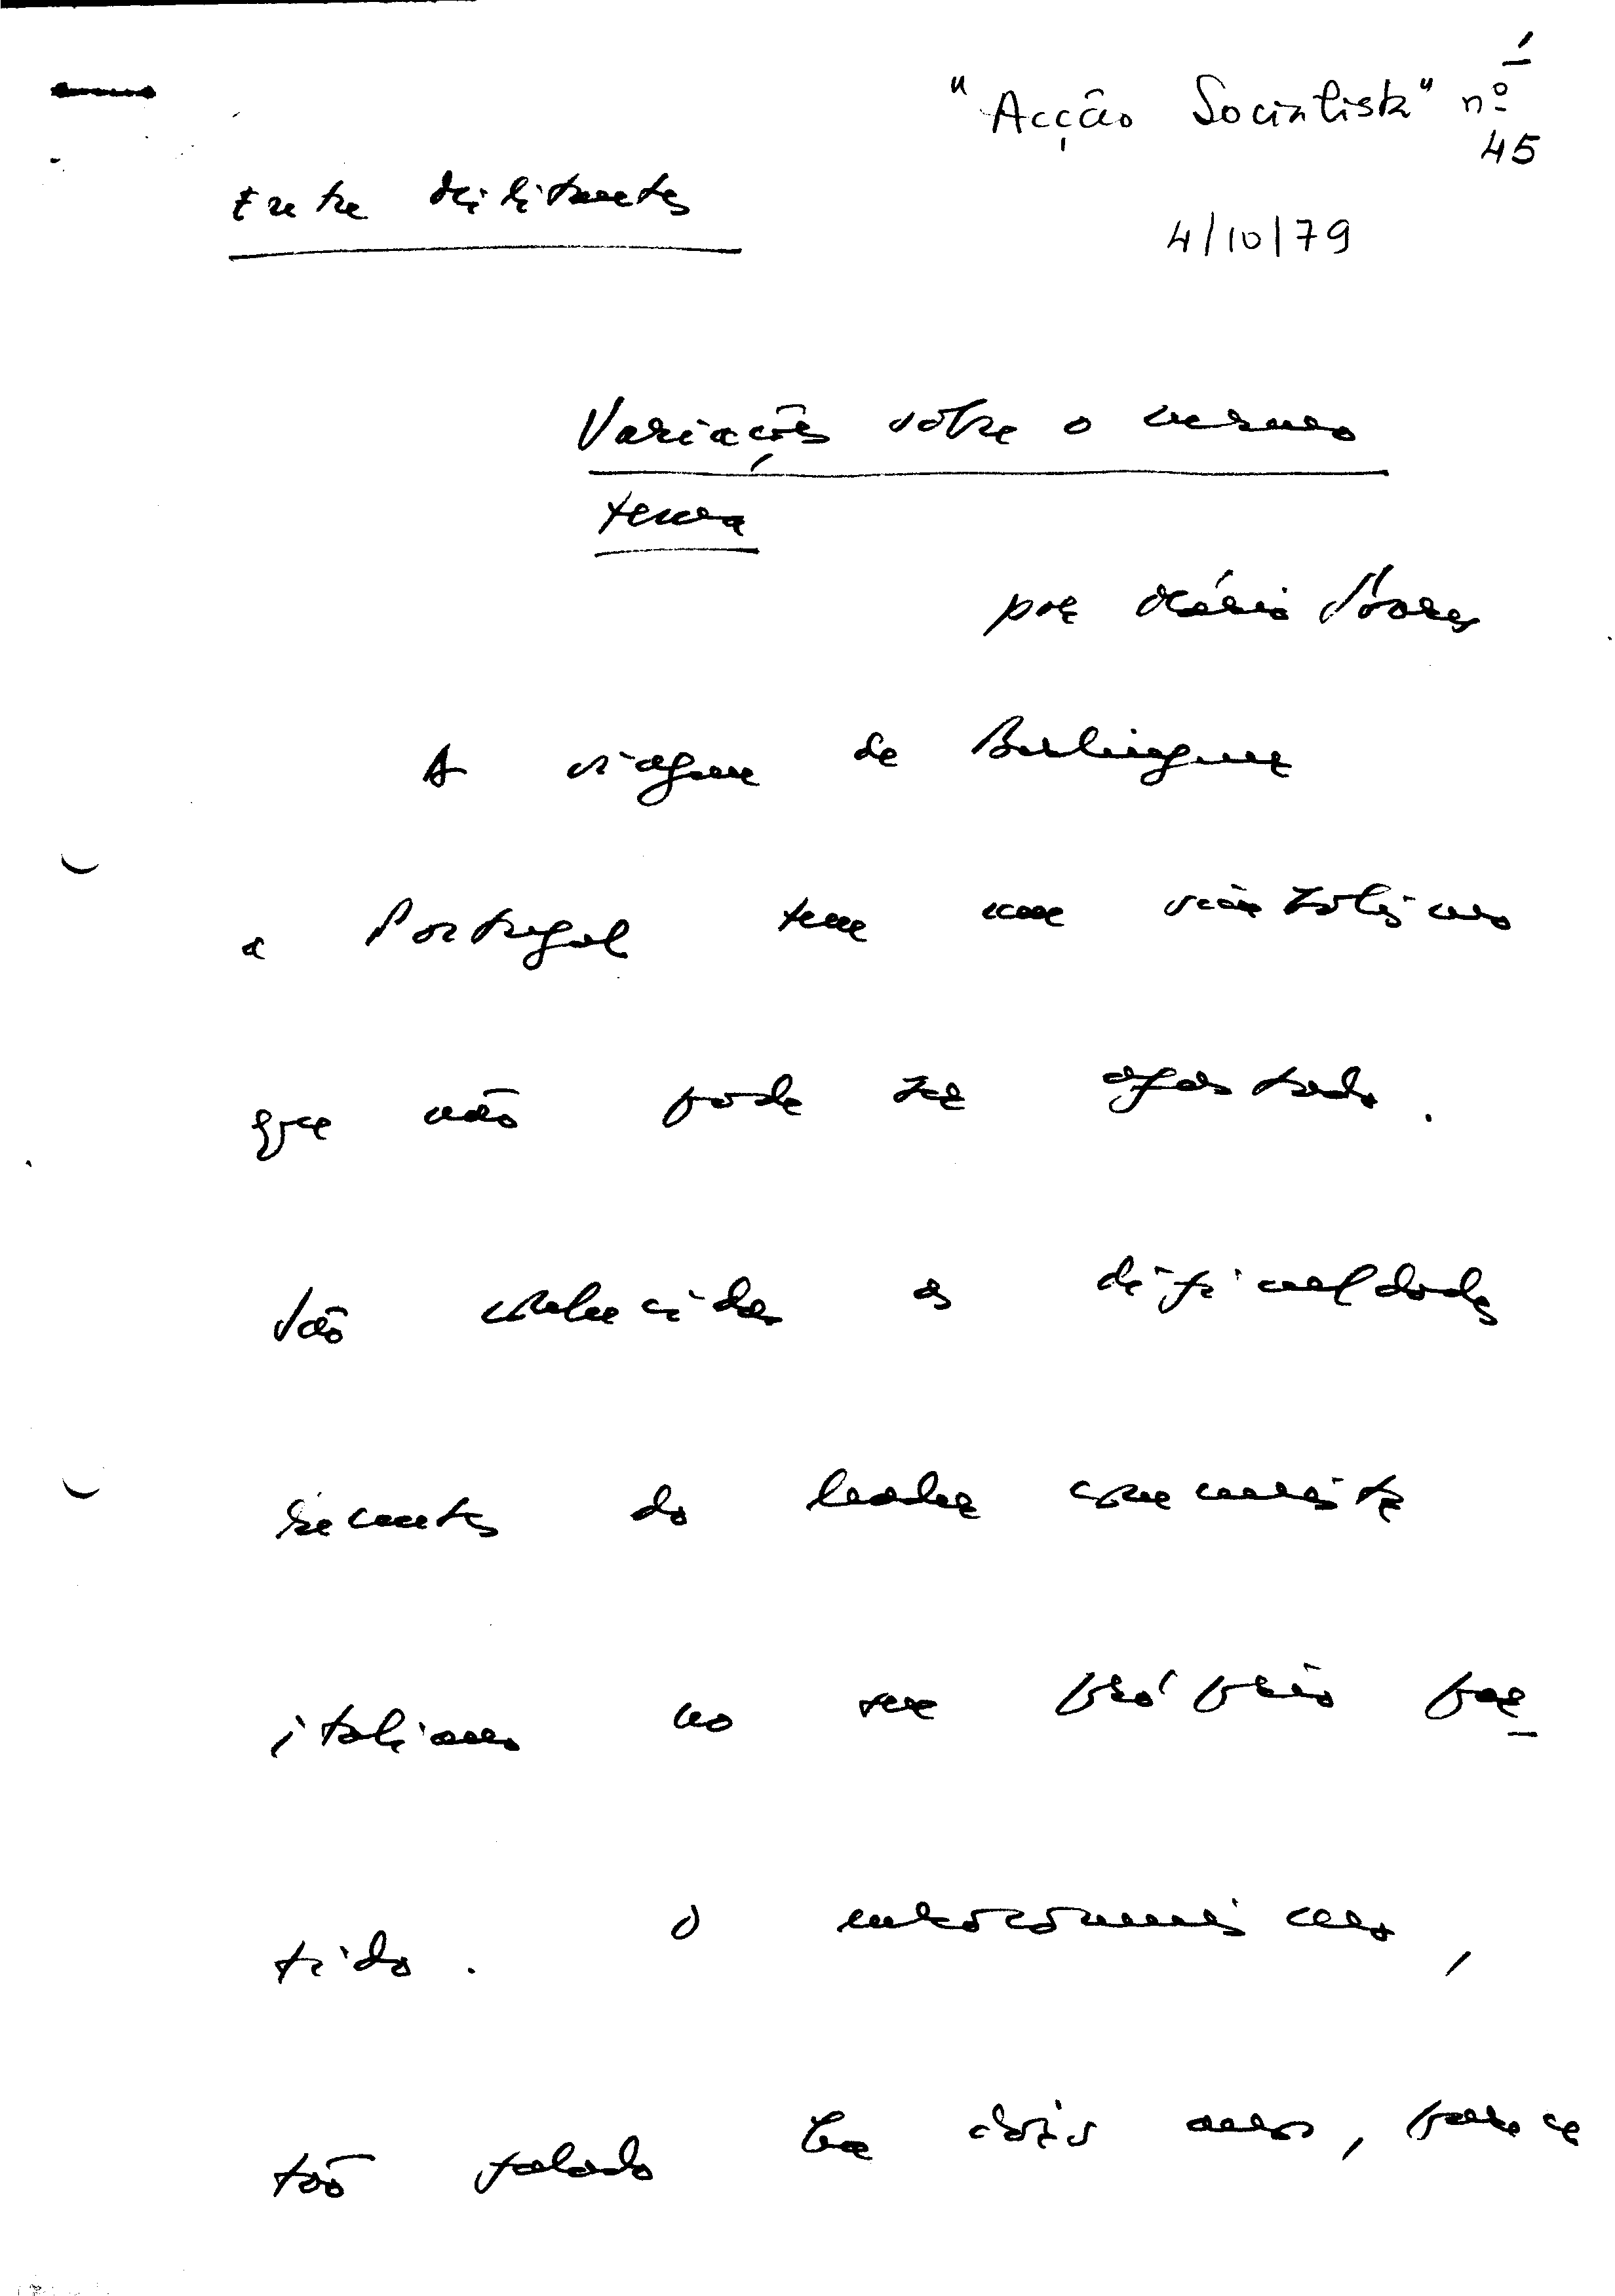 1
"Acção Socialista" nº
45
Entre Militantes
4/10/79
Variações sobre o mesmo
tema
por Mário Soares
A viagem de Berlinguer
a Portugal tem um simbolismo
que não pode ser afastado.
São conhecidas as dificuldades
recentes do leader comunista
italiano no seu próprio par
tido. O eurocomunismo,
tão falado há dois anos, parece